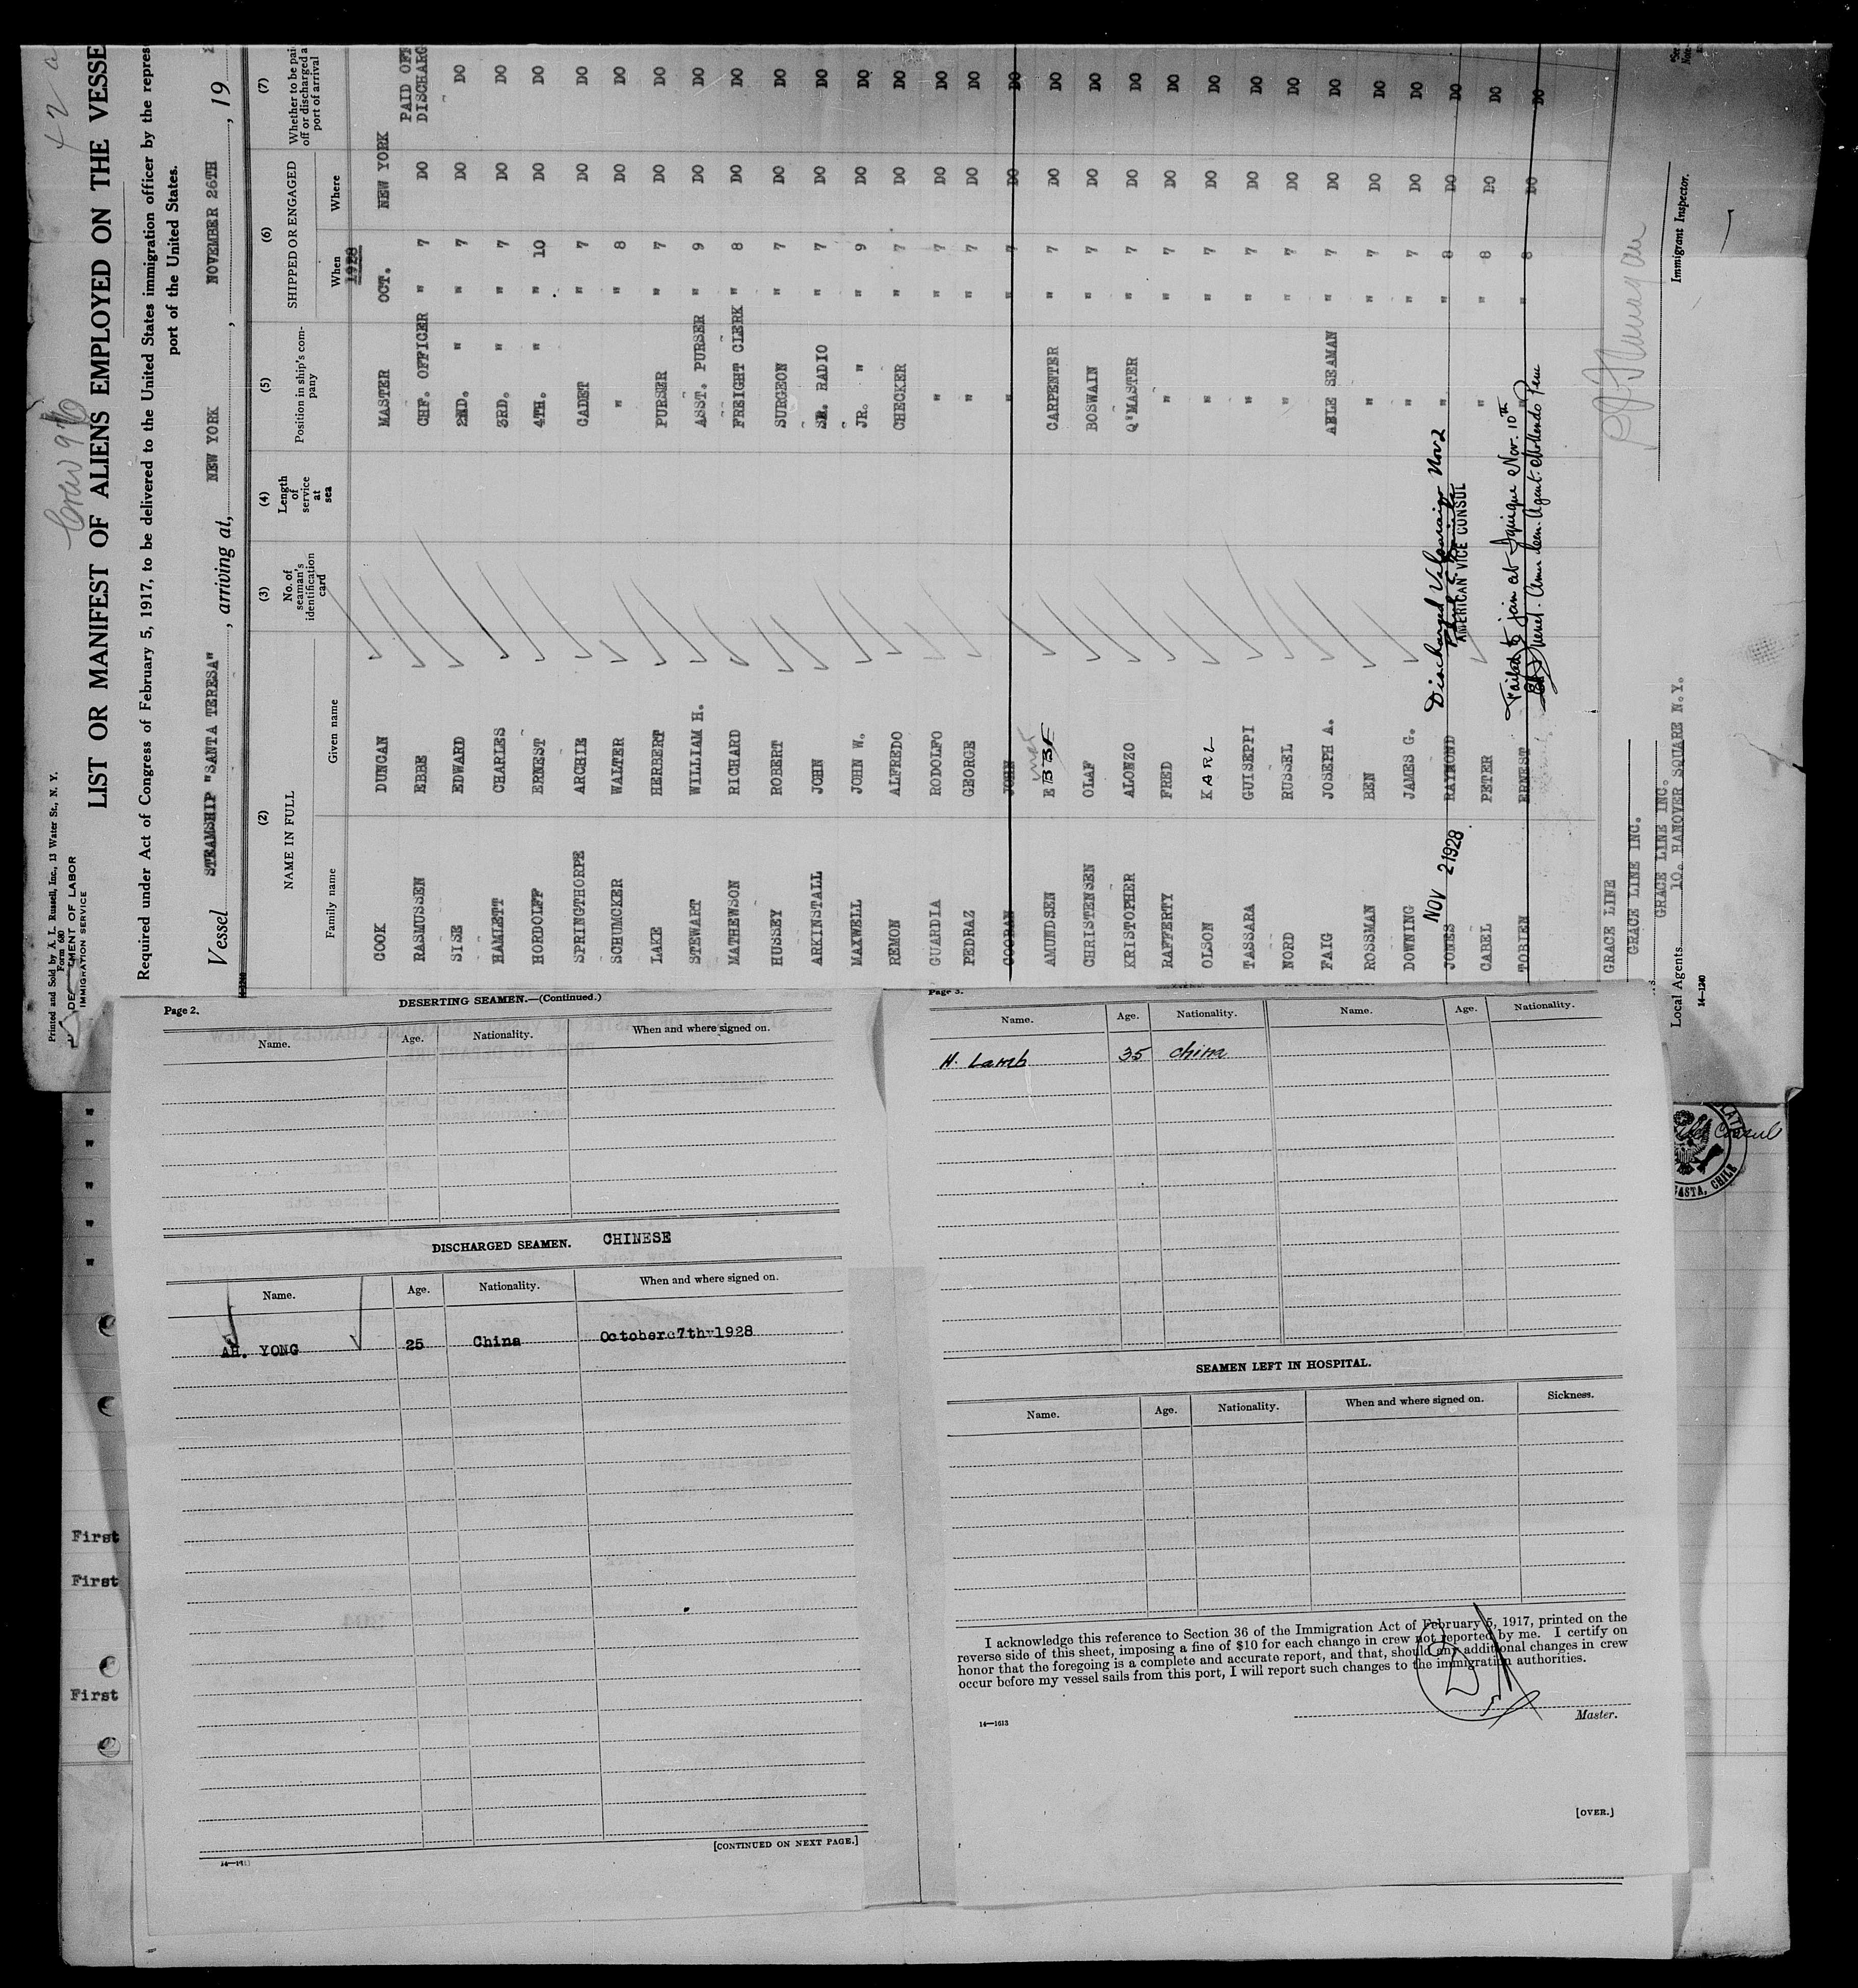 Printed and Sold by A. L. Russell, Inc., 13 Water St., N. Y.
Form 680
IMMIGRATION SERVICE
Crew 96
LIST OR MANIFEST OF ALIENS EMPLOYED ON THE VESSE
Required under Act of Congress of February 5, 1917, to be delivered to the United States immigration officer by the repres
port of the United States.
Vessel STEAMSHIP "SANTA TERESA", arriving at, NEW YORK, NOVEMBER 26TH, 19
(2) (3) (4) (5) (6) (7)
NAME IN FULL
Family name Given name
No. of seaman's identification card
Length of service at sea
Position in ship's company
SHIPPED OR ENGAGED
When Where
Whether to be paid off or discharged a port of arrival
1928
COOK DUNCAN MASTER OCT. NEW YORK
PAID OFF
DISCHARG
RASMUSSEN EBBE CHF. OFFICER " 7 DO
SISE EDWARD 2ND. " " 7 DO DO
HAMLETT CHARLES 3RD. " " 7 DO DO
NORDOLFF ERNEST 4TH. " " 10 DO DO
SPRINGTHORPE ARCHIE CADET " 7 DO DO
SCHUMCKER WALTER " " 8 DO DO
LAKE HERBERT PURSER " 7 DO DO
STEWART WILLIAM H. ASST. PURSER " 9 DO DO
MATHEWSON RICHARD FREIGHT CLERK " 8 DO DO
HUSSEY ROBERT SURGEON " 7 DO DO
ARKINSTALL JOHN SR. RADIO " 7 DO DO
MAXWELL JOHN W. JR. " " 9 DO DO
REMON ALFREDO CHECKER " 7 DO DO
GUARDIA RODOLFO " " 7 DO DO
PEDRAZ GEORGE " " 7 DO DO
JOHN " " 7 DO DO
AMUNDSEN EBBE CARPENTER " 7 DO DO
CHRISTENSEN OLAF BOSWAIN " 7 DO DO
KRISTOPHER ALONZO Q'MASTER " 7 DO DO
RAFFERTY FRED " " 7 DO DO
OLSON KARL " " 7 DO DO
TASSARA GUISEPPI " " 7 DO DO
NORD RUSSEL " " 7 DO DO
FAIG JOSEPH A. ABLE SEAMAN " 7 DO DO
ROSSMAN BEN " " 7 DO DO
DOWNING JAMES G. " " 7 DO DO
NOV 2 1928 Discharged Valparaiso Nov 2
JONES RAYMOND " " 8 DO DO
AMERICAN VICE CONSUL
CABEL PETER " " 8 DO DO
Failed to join at Iquique Nov. 10th
TOBIEN ERNEST " " 8 DO DO
Amer. Con. Agent. Mollendo Peru
GRACE LINE
GRACE LINE INC.
GRACE LINE INC.
Local Agents 10. HANOVER SQUARE N.Y.
14—1240
Immigrant Inspector.
Page 2.
DESERTING SEAMEN.—(Continued.)
Name. Age. Nationality. When and where signed on.
DISCHARGED SEAMEN. CHINESE
Name. Age. Nationality. When and where signed on.
AH. YONG 25 China October 7th 1928
[CONTINUED ON NEXT PAGE.]
Page 3.
Name. Age. Nationality. Name. Age. Nationality.
H. Lamb 35 China
SEAMEN LEFT IN HOSPITAL.
Name. Age. Nationality. When and where signed on. Sickness.
I acknowledge this reference to Section 36 of the Immigration Act of February 5, 1917, printed on the
reverse side of this sheet, imposing a fine of $10 for each change in crew not reported by me. I certify on
honor that the foregoing is a complete and accurate report, and that, should any additional changes in crew
occur before my vessel sails from this port, I will report such changes to the immigration authorities.
14—1613
Master.
[OVER.]
First
First
First
Consul
ASTA, CHILE